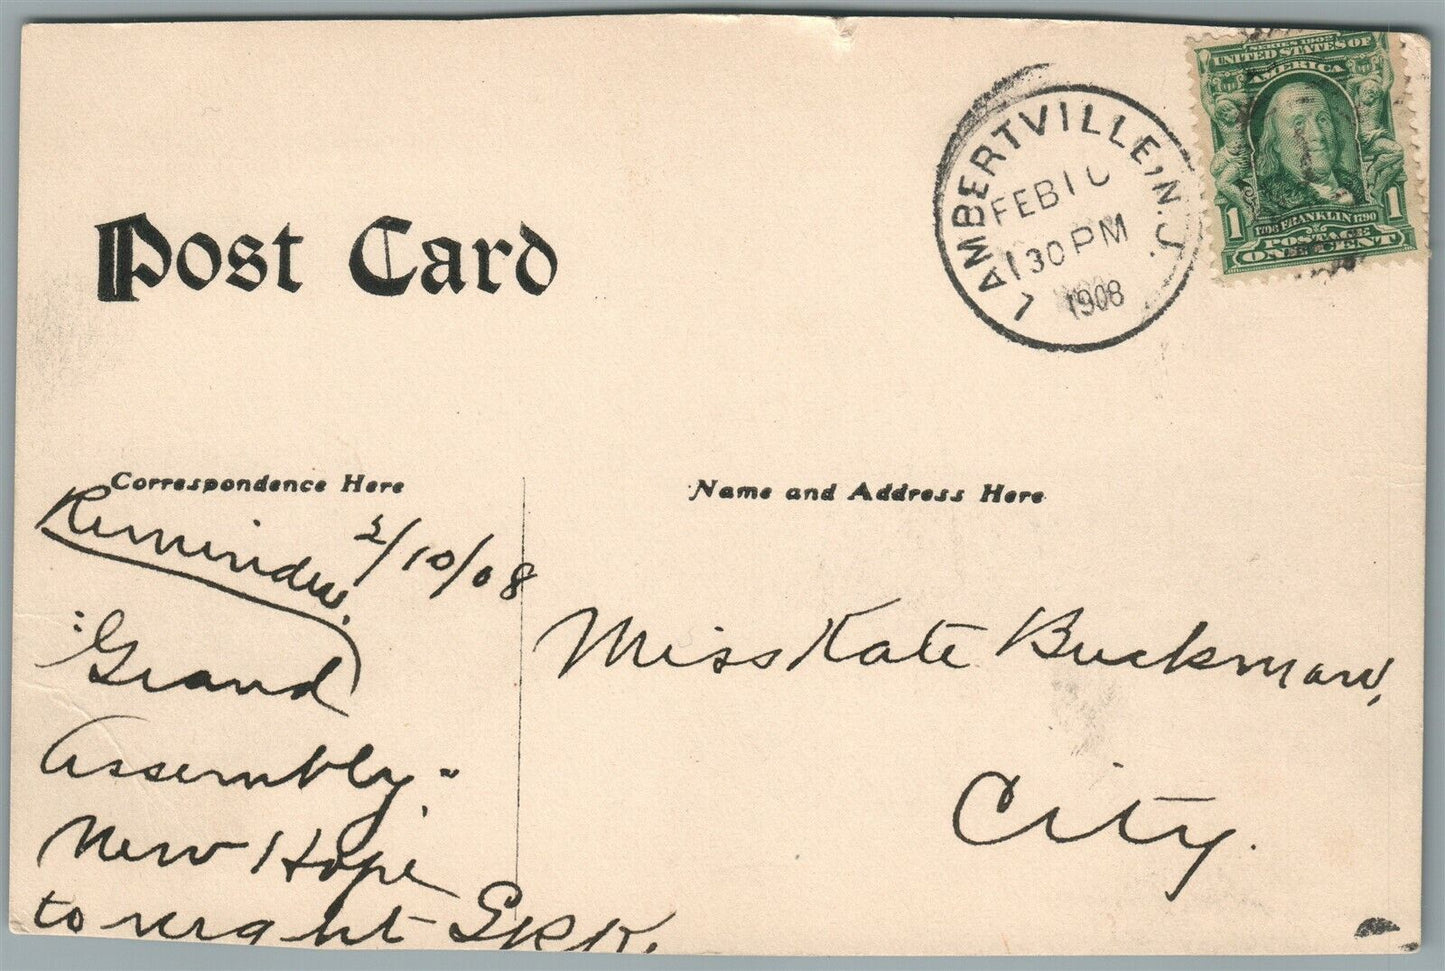 Post Card
LAMBERTVILLE, N.J.
FEB 10
130 PM
1908
SERIES 1902
UNITED STATES OF
AMERICA
1 1
1706 FRANKLIN 1790
POSTAGE
ONE CENT
Correspondence Here
Reminder. 2/10/08
"Grand
Assembly"
New Hope
to night
Name and Address Here
Miss Kate Buckman,
City.